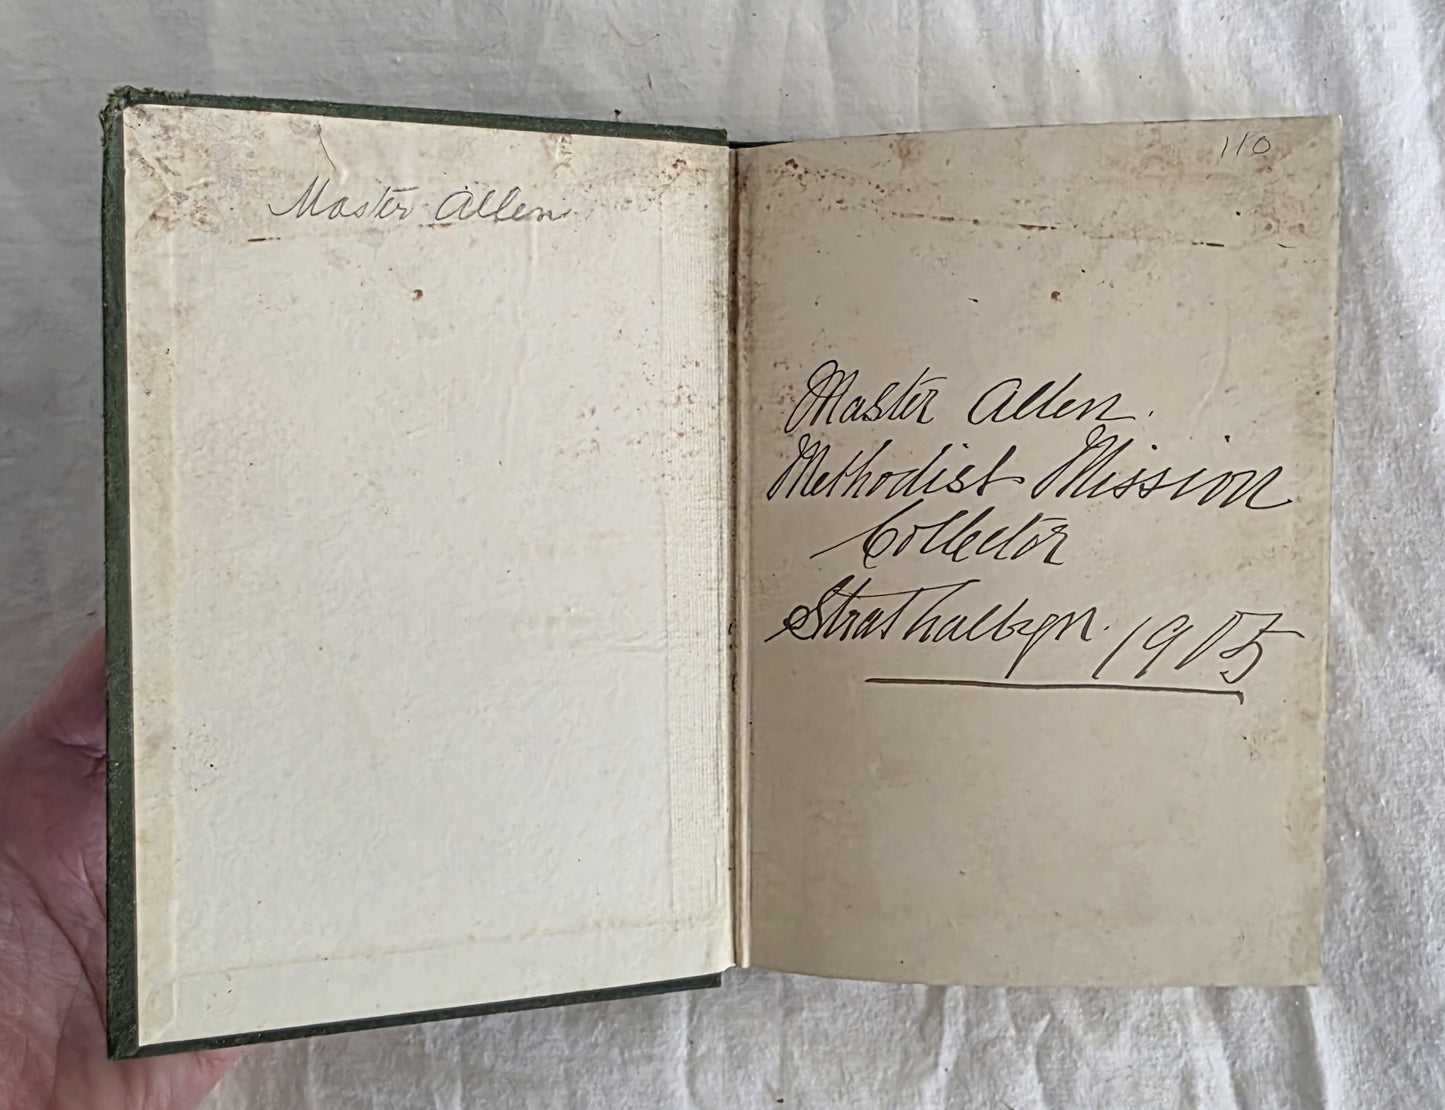 Master Allen
110
Master Allen.
Methodist Mission
Collector
Strathalbyn. 1905